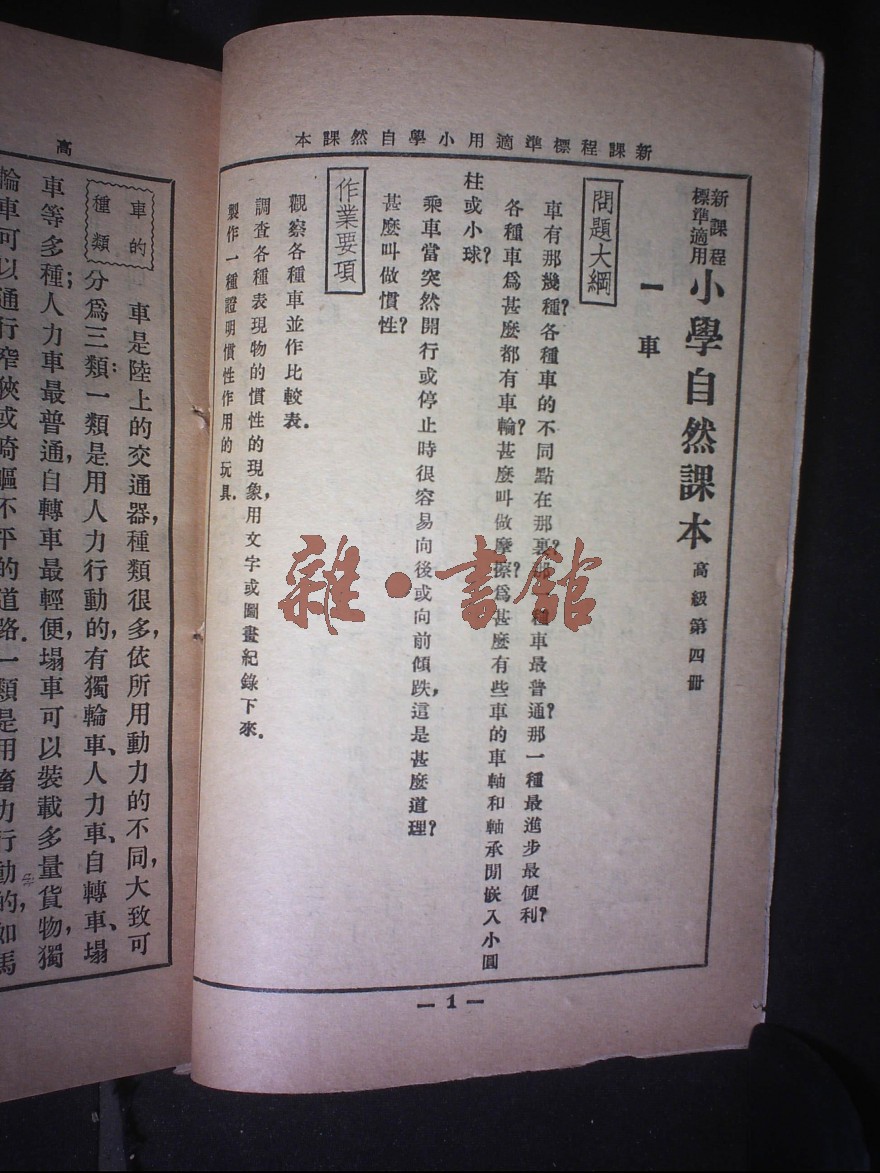 新課程標準適用小學自然課本
新課程
標準適用
小學自然課本
高級第四冊
一 車
問題大綱
車有那幾種?各種車的不同點在那裏?那一種車最普通?那一種最進步最便利?
各種車爲甚麼都有車輪?甚麼叫做摩擦?爲甚麼有些車的車軸和軸承閒嵌入小圓
柱或小球?
乘車當突然開行或停止時很容易向後或向前傾跌,這是甚麼道理?
甚麼叫做慣性?
作業要項
觀察各種車並作比較表.
調查各種表現物的慣性的現象,用文字或圖畫紀錄下來.
製作一種證明慣性作用的玩具.
— 1 —
高
車的
種類
車是陸上的交通器,種類很多,依所用動力的不同,大致可
分爲三類:一類是用人力行動的,有獨輪車、人力車、自轉車、塌
車等多種;人力車最普通,自轉車最輕便,塌車可以裝載多量貨物,獨
輪車可以通行窄狹或崎嶇不平的道路.一類是用畜力行動的,如馬
雜·書館